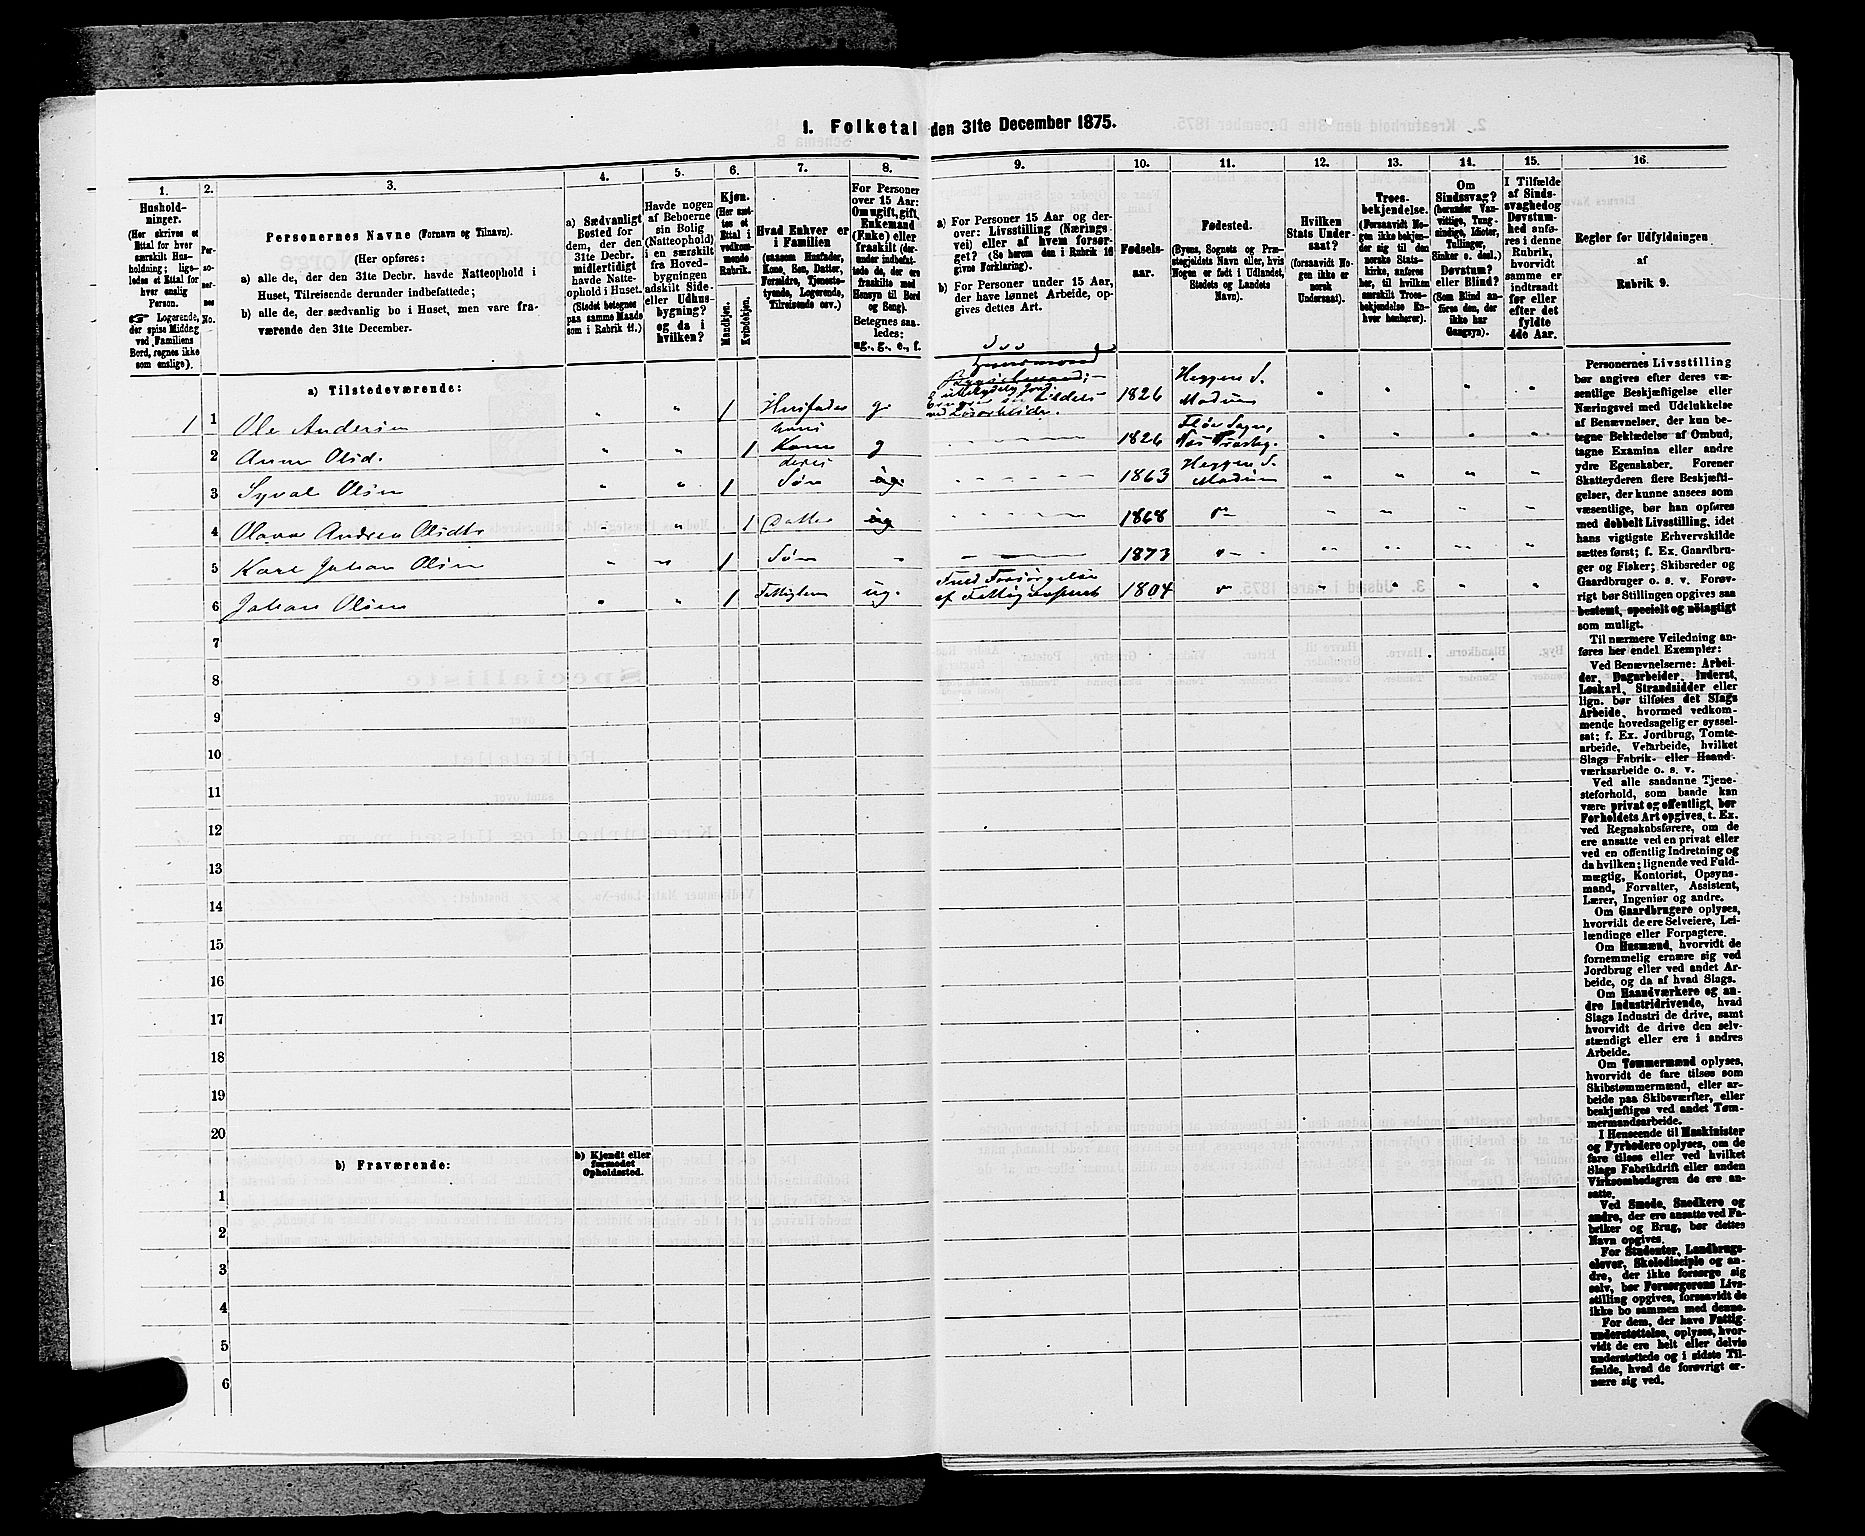 1. Folketal den 31te December 1875.
1.
2.
3.
4.
5.
6.
7.
8.
9.
10.
11.
12.
13.
14.
15.
16.
Hushold-
ninger.
(Her skrives et
Ettal for hver
særskilt Hus-
holdning; lige-
ledes et Ettal for
hver enslig
Person.
☞ Logerende,
der spise Middag
ved Familiens
Bord, regnes ikke
som enslige).
Per-
so-
ner-
nes
No.
Personernes Navne (Fornavn og Tilnavn).
(Her opføres:
a) alle de, der den 31te Decbr. havde Natteophold i
Huset, Tilreisende derunder indbefattede;
b) alle de, der sædvanlig bo i Huset, men vare fra-
værende den 31te December.
a) Sædvanligt
Bosted for
dem, der den
31te Decbr.
midlertidigt
havde Natte-
ophold i Huset.
(Stedet betegnes
paa samme Maade
som i Rubrik 11.)
Havde nogen
af Beboerne
sin Bolig
(Natteophold)
i en særskilt
fra Hoved-
bygningen
adskilt Side-
eller Udhus-
bygning?
og da i
hvilken?
Kjøn.
(Her sæt-
tes et
Ettal i
vedkom-
mende
Rubrik.
Mandkjøn.
Kvindekjøn.
Hvad Enhver er
i Familien
(saasom Husfader,
Kone, Søn, Datter,
Forældre, Tjeneste-
tyende, Logerende,
Tilreisende osv.)
For Personer
over 15 Aar:
Om ugift, gift,
Enkemand
(Enke) eller
fraskilt (der-
under indbefat-
tede de, der ere
fraskilte med
Hensyn til Bord
og Seng).
Betegnes saa-
ledes:
ug., g., e., f.
a) For Personer 15 Aar og der-
over: Livsstilling (Nærings-
vei) eller af hvem forsør-
get? (Se herom den i Rubrik 16
givne Forklaring).
b) For Personer under 15 Aar,
der have lønnet Arbeide, op-
gives dettes Art.
Fødsels-
aar.
Fødested.
(Byens, Sognets og Præ-
stegjeldets Navn eller, hvis
Nogen er født i Udlandet,
Stedets og Landets
Navn).
Hvilken
Stats Under-
saat?
(forsaavidt No-
gen ikke er
norsk
Undersaat).
Troes-
bekjendelse.
(Forsaavidt No-
gen ikke bekjen-
der sig til den
norske Stats-
kirke, anføres
her, til hvilken
særskilt Troes-
bekjendelse En-
hver henhører).
Om
Sindssvag?
(herunder Van-
vittige, Tung-
sindige, Idioter,
Tullinger,
Sinker o. desl.)
Døvstum?
eller Blind?
(Som Blind an-
føres den, der
ikke har
Gangsyn).
I Tilfælde
af Sinds-
svaghed og
Døvstum-
hed anfø-
res i denne
Rubrik,
hvorvidt
samme er
indtraadt
før eller
efter det
fyldte
4de Aar.
Regler for Udfyldningen
af
Rubrik 9.
a) Tilstedeværende:
1 1 Ole Andersen " " 1 Husfader g. 1826 Heggen S. Modum " " " "
2 Anne Olsd. " " 1 hans Kone g 1826
3 Syval Olsen " " 1 deres Søn ug. 1863 Heggen S. Modum " " " "
4 Olava Andrea Olsdtr " " 1 Datter ug 1868 " " " "
5 Karl Johan Olsen " " 1 Søn 1873 " " " "
6 Johan Olsen " " 1 Fattiglem ug. Fuld Forsørgelse af Fattigvæsenet 1804 " " " "
7
8
9
10
11
12
13
14
15
16
17
18
19
20
b) Fraværende:
b) Kjendt eller
formodet
Opholdssted.
1
2
3
4
5
6
Personernes Livsstilling
bør angives efter deres væ-
sentlige Beskjæftigelse eller
Næringsvei med Udelukkelse
af Benævnelser, der kun be-
tegne Beklædelse af Ombud,
tagne Examina eller andre
ydre Egenskaber. Forener
Skatteyderen flere Beskjæfti-
gelser, der kunne ansees som
væsentlige, bør han opføres
med dobbelt Livsstilling, idet
hans vigtigste Erhvervskilde
sættes først; f. Ex. Gaardbru-
ger og Fisker; Skibsreder og
Gaardbruger o. s. v. Forøv-
rigt bør Stillingen opgives saa
bestemt, specielt og nöiagtigt
som muligt.
Til nærmere Veiledning an-
føres her endel Exempler:
Ved Benævnelserne: Arbei-
der, Dagarbeider, Inderst,
Løskarl, Strandsidder eller
lign. bør tilføies det Slags
Arbeide, hvormed vedkom-
mende hovedsagelig er syssel-
sat; f. Ex. Jordbrug, Tomte-
arbeide, Veiarbeide, hvilket
Slags Fabrik- eller Haand-
værksarbeide o. s. v.
Ved alle saadanne Tjene-
steforhold, som baade kan
være privat og offentligt, bør
Forholdets Art opgives, t. Ex.
ved Regnskabsførere, om de
ere ansatte ved en privat eller
ved en offentlig Indretning og
da hvilken; lignende ved Fuld-
mægtig, Kontorist, Opsyns-
mand, Forvalter, Assistent,
Lærer, Ingeniør og andre.
Om Gaardbrugere oplyses,
hvorvidt de ere Selveiere, Lei-
lændinge eller Forpagtere.
Om Husmænd, hvorvidt de
fornemmelig ernære sig ved
Jordbrug eller ved andet Ar-
beide, og da af hvad Slags.
Om Haandværkere og an-
dre Industridrivende, hvad
Slags Industri de drive, samt
hvorvidt de drive den selv-
stændigt eller ere i andres
Arbeide.
Om Tømmermænd oplyses,
hvorvidt de fare tilsøs som
Skibstømmermænd, eller ar-
beide paa Skibsværfter, eller
beskjæftiges ved andet Tøm-
mermandsarbeide.
I Henseende til Maskinister
og Fyrbødere oplyses, om de
fare tilsøs eller ved hvilket
Slags Fabrikdrift eller anden
Virksomhedsgren de ere an-
satte.
Ved Smede, Snedkere og
andre, der ere ansatte ved Fa-
briker og Brug, bør dettes
Navn opgives.
For Studenter, Landbrugs-
elever, Skoledisciple og an-
dre, der ikke forsørge sig
selv, bør Forsørgerens Livs-
stilling opgives, forsaavidt de
ikke bo sammen med denne.
For dem, der have Fattig-
understøttelse, oplyses, hvor-
vidt de ere helt eller delvis
understøttede og i sidste Til-
fælde, hvad de forøvrigt er-
nære sig ved.